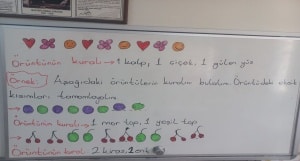 Örüntünün kuralı → 1 kalp, 1 çiçek, 1 gülen yüz
Örnek: Aşağıdaki örüntülerin kuralını bulalım. Örüntüdeki eksik
kısımları tamamlayalım
Örüntünün kuralı → 1 mor top, 1 yeşil top
Örüntünün kuralı 2 kiraz, 1